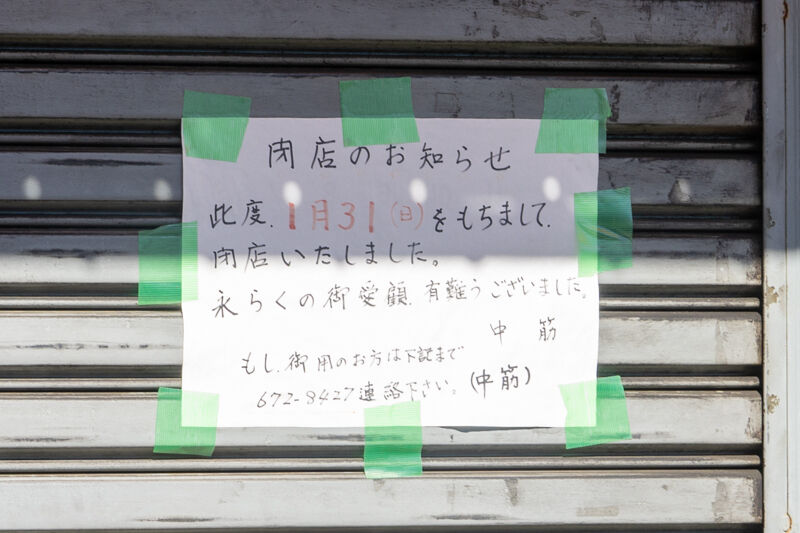 閉店のお知らせ
此度、1月31(日)をもちまして、
閉店いたしました。
永らくの御愛顧、有難うございました。
中筋
もし、御用のお方は下記まで
672-8427連絡下さい。(中筋)